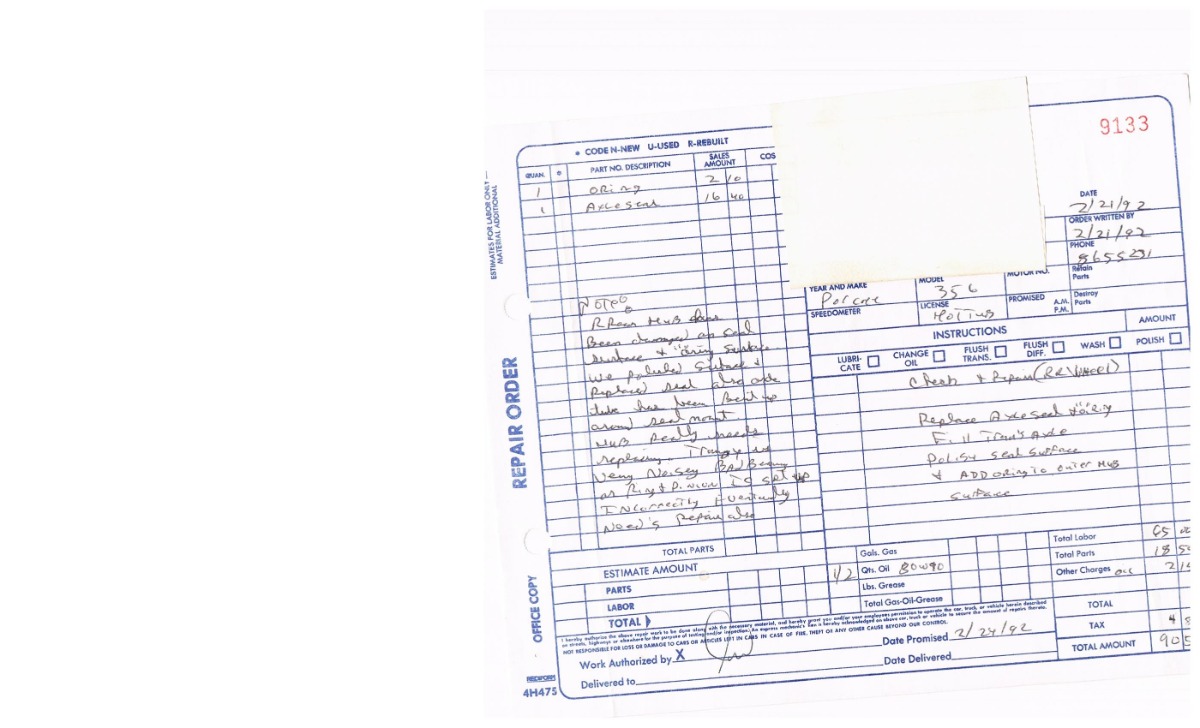 9133
* CODE N-NEW U-USED R-REBUILT
QUAN. * PART NO. DESCRIPTION SALES AMOUNT COS
1 ORing 2 10
1 Axle seal 16 40
ESTIMATES FOR LABOR ONLY —
MATERIAL ADDITIONAL
DATE
2/21/92
ORDER WRITTEN BY
2/21/92
PHONE
8655231
YEAR AND MAKE
MODEL
356
MOTOR NO.
Retain
Parts
SPEEDOMETER
LICENSE
HOTTUB
PROMISED A.M.
P.M.
Destroy
Parts
INSTRUCTIONS
AMOUNT
LUBRI-
CATE
CHANGE
OIL
FLUSH
TRANS.
FLUSH
DIFF.
WASH
POLISH
Check & Repair (RR wheel)
Replace Axle seal & "oring
Fill Trans Axle
Polish seal surface
& ADD oring to outer Hub
surface
Note
R Rear HuB has
Been damaged on seal
surface & "oring surface
we polished surface &
Replaced seal also axle
tube has been Beat up
around seal mount.
HuB Really needs
replacing.
very Noisey BAD Bearing
or Ring & Pinion Is set up
INcorrectly Eventually
Need's Repair also
REPAIR ORDER
OFFICE COPY
TOTAL PARTS
ESTIMATE AMOUNT
PARTS
LABOR
TOTAL
Gals. Gas
1/2 Qts. Oil 80w90
Lbs. Grease
Total Gas-Oil-Grease
Total Labor 65
Total Parts 18 5
Other Charges oil 2
TOTAL
TAX 4
TOTAL AMOUNT 90 5
I hereby authorize the above repair work to be done along with the necessary material, and hereby grant you and/or your employees permission to operate the car, truck, or vehicle herein described
on streets, highways or elsewhere for the purpose of testing and/or inspection. An express mechanic's lien is hereby acknowledged on above car, truck or vehicle to secure the amount of repairs thereto.
NOT RESPONSIBLE FOR LOSS OR DAMAGE TO CARS OR ARTICLES LEFT IN CARS IN CASE OF FIRE, THEFT OR ANY OTHER CAUSE BEYOND OUR CONTROL.
Work Authorized by X
Date Promised 2/24/92
Delivered to
Date Delivered
REDIFORM
4H475